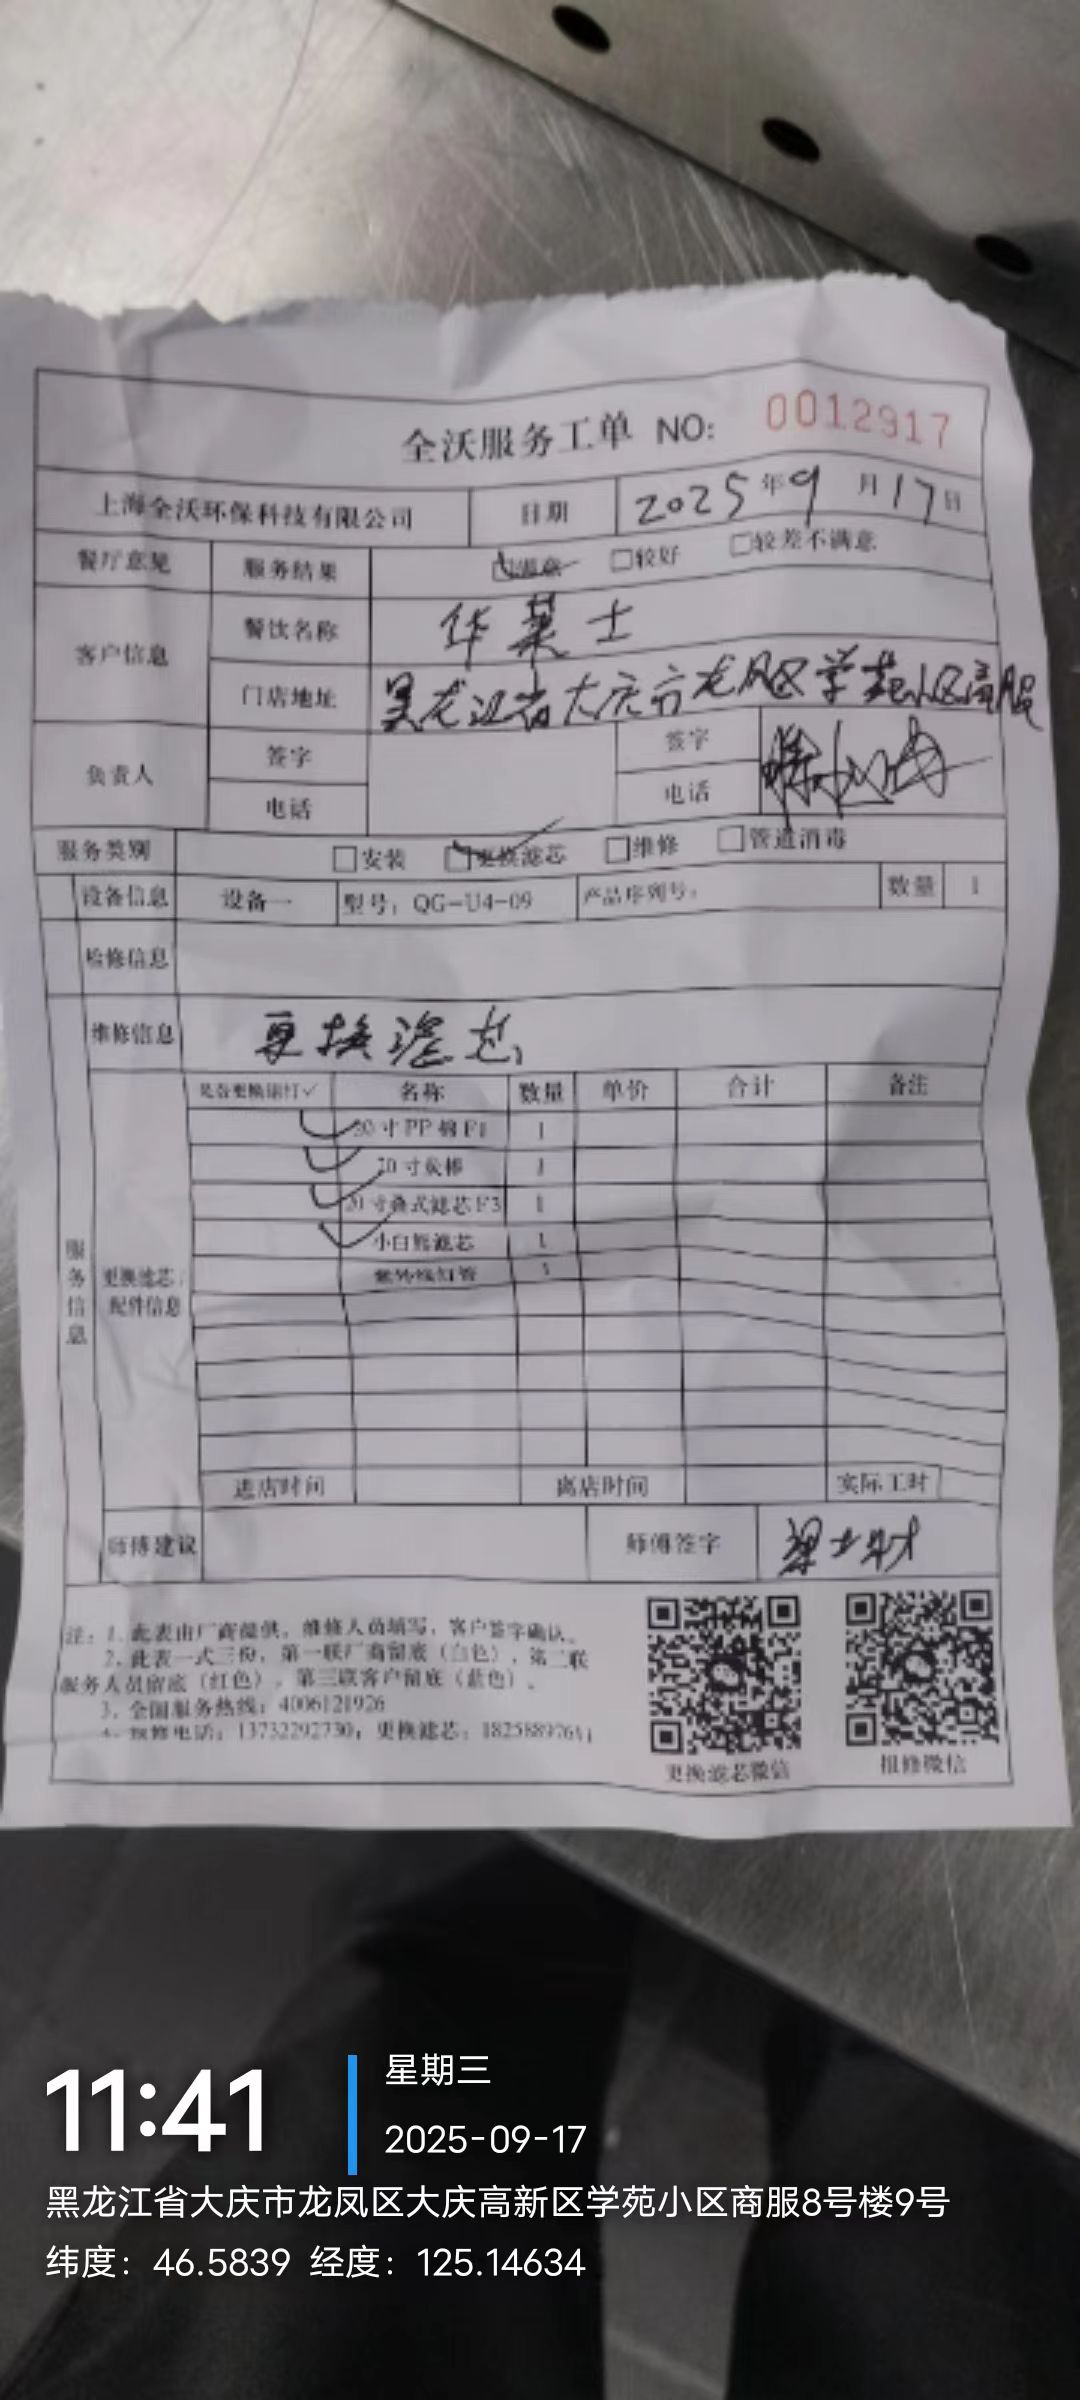 全沃服务工单 NO: 0012917
上海全沃环保科技有限公司 日期 2025年9月17日
餐厅意见 服务结果 满意 较好 较差不满意
客户信息 餐饮名称 华莱士
门店地址 黑龙江省大庆市龙凤区学苑小区商服
负责人 签字 签字
电话 电话
服务类别 安装 更换滤芯 维修 管道消毒
设备信息 设备一 型号：QG-U4-09 产品序列号： 数量 1
检修信息
维修信息 更换滤芯
是否更换请打✓ 名称 数量 单价 合计 备注
20寸PP棉F1 1
20寸炭棒 1
20寸叠式滤芯F3 1
小白熊滤芯 1
紫外线灯管 1
服务信息
更换滤芯/
配件信息
进店时间 离店时间 实际工时
师傅建议 师傅签字
注：1、此表由厂商提供，维修人员填写，客户签字确认。
2、此表一式三份，第一联厂商留底（白色），第二联
服务人员留底（红色），第三联客户留底（蓝色）。
3、全国服务热线：4006121926
4、报修电话：13732292730；更换滤芯：
更换滤芯微信 报修微信
11:41
星期三
2025-09-17
黑龙江省大庆市龙凤区大庆高新区学苑小区商服8号楼9号
纬度：46.5839 经度：125.14634